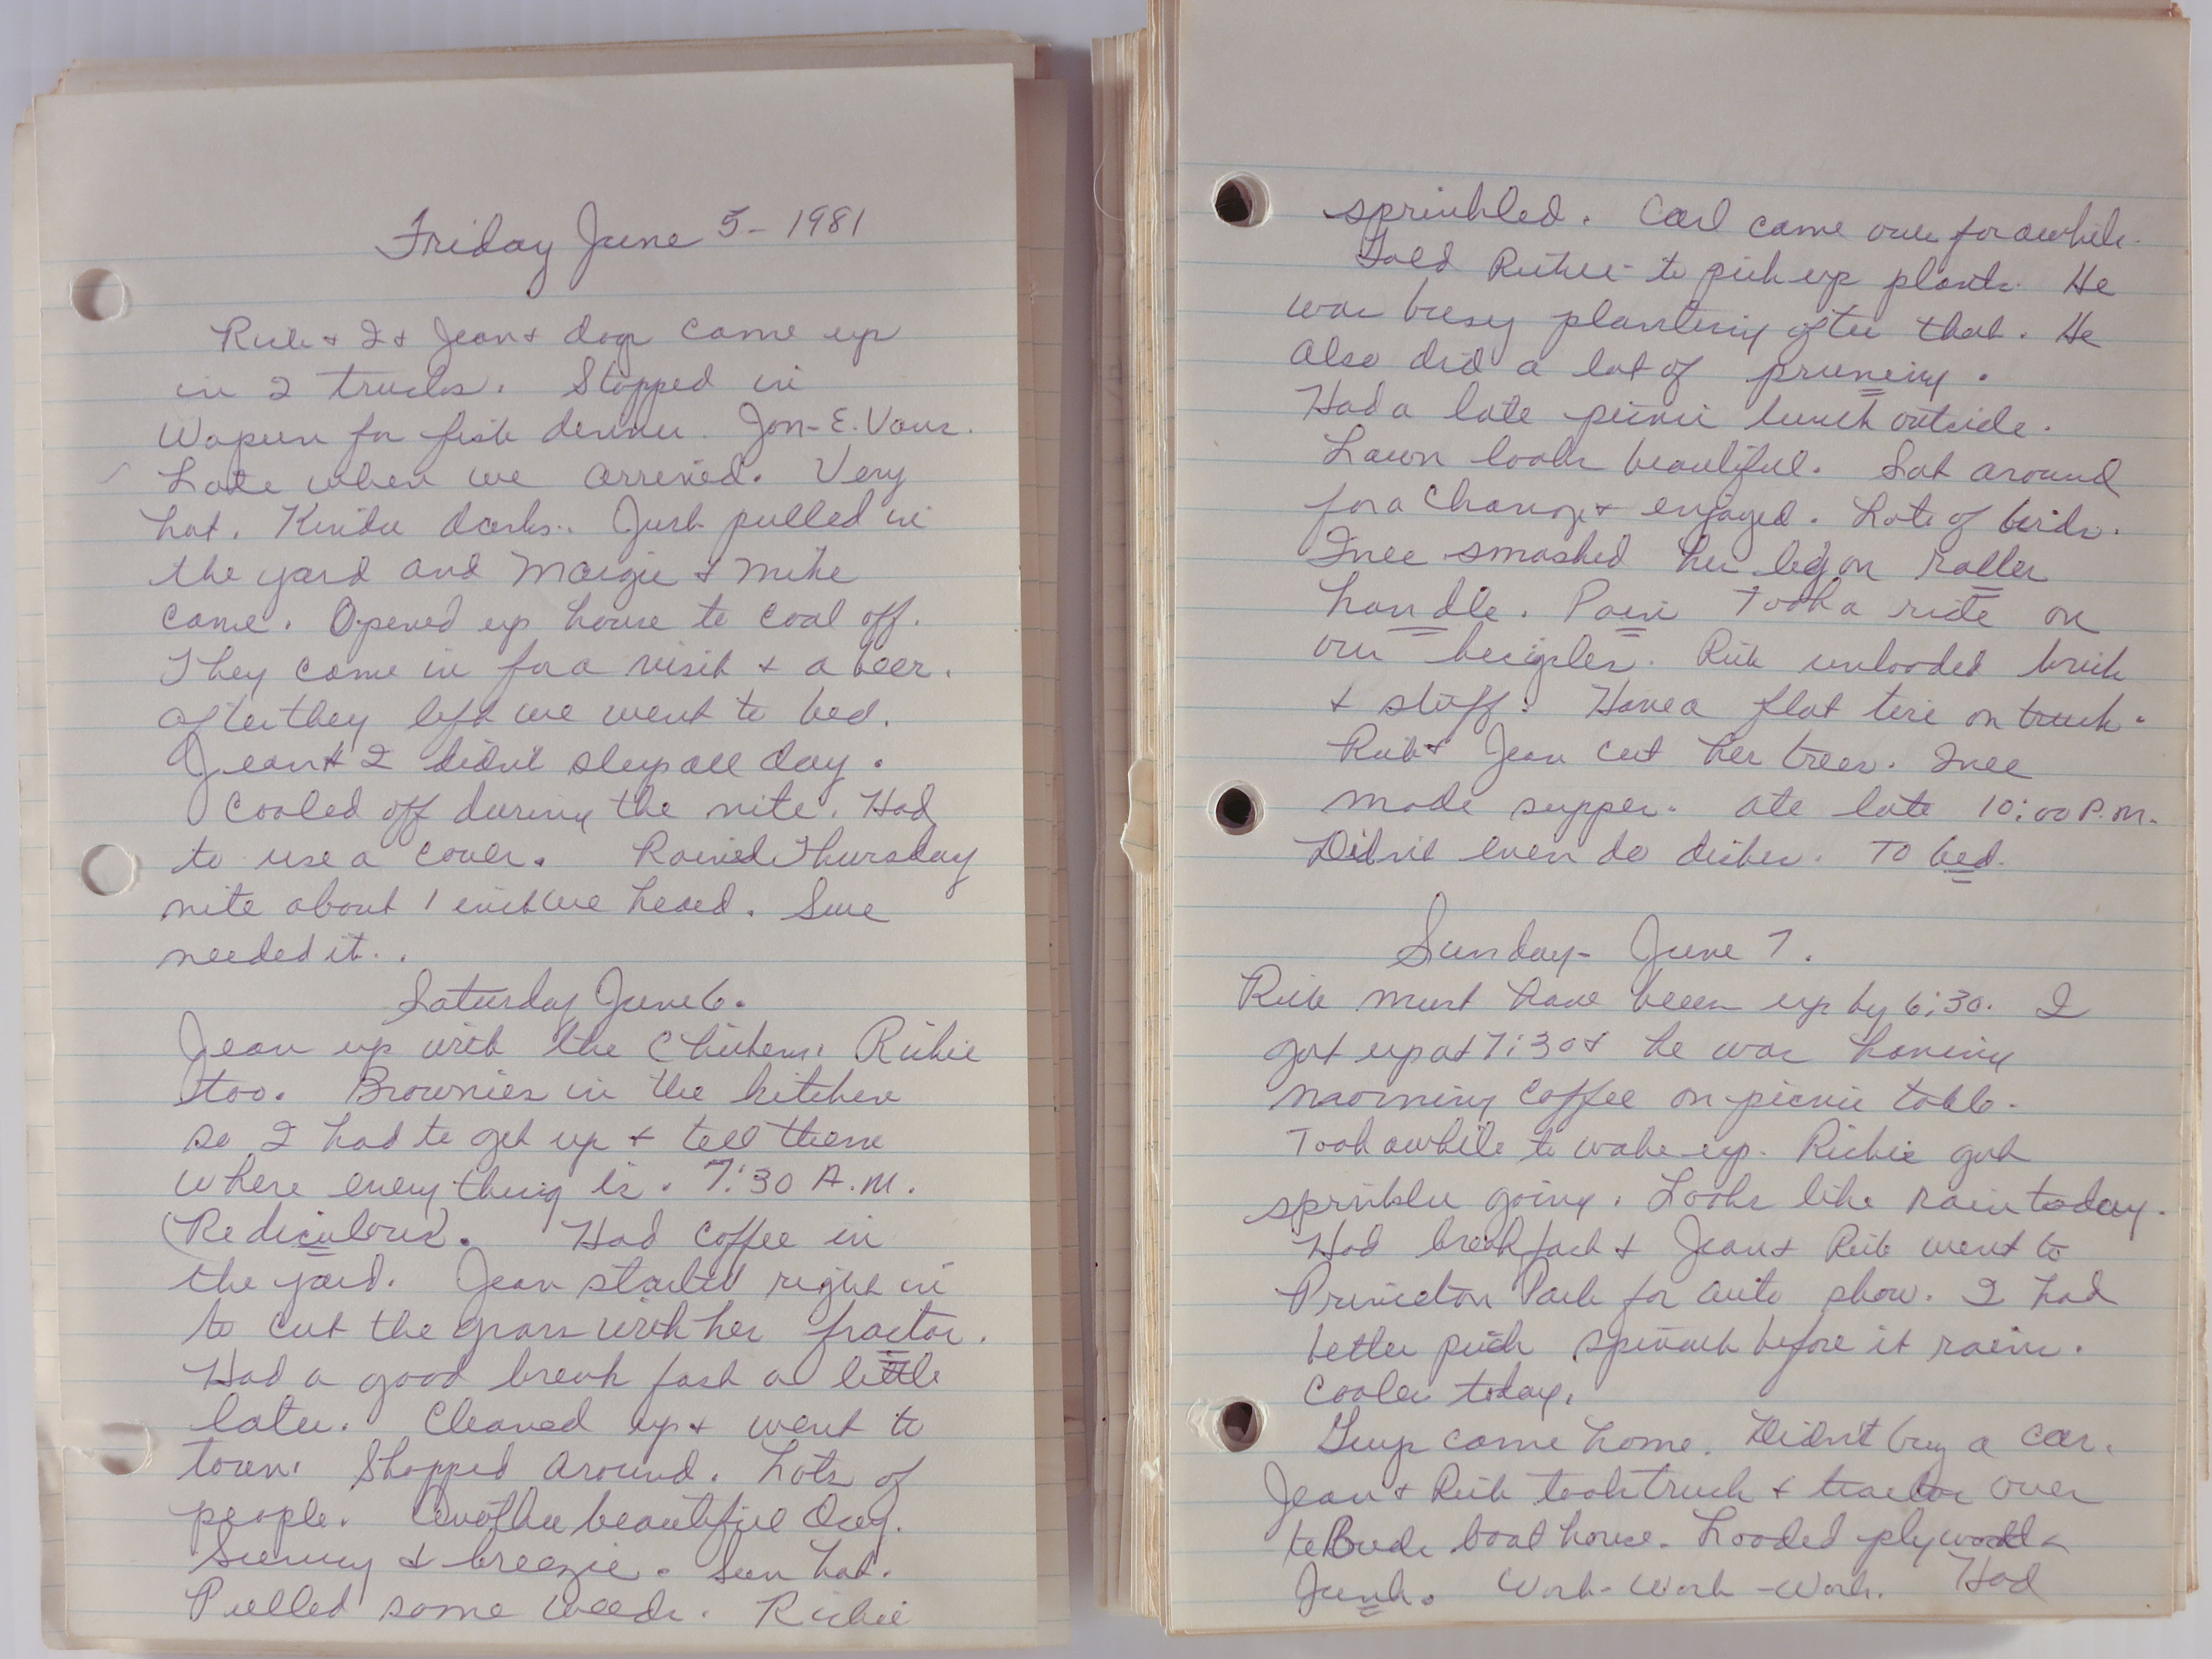 Friday June 5- 1981
Rich & I & Jean & dog came up
in 2 trucks. Stopped in
Wapun for fish dinner. Jon-E. Vans.
Late when we arrived. Very
hot. Kinda dark. Just pulled in
the yard and Margie & Mike
came. Opened up house to cool off.
They came in for a visit & a beer.
after they left we went to bed.
Jean & I didn't sleep all day.
Cooled off during the nite. Had
to use a cover. Rained Thursday
nite about 1 inch we heard. Sure
needed it..
Saturday June 6.
Jean up with the Chickens. Richie
too. Brownies in the kitchen
so I had to get up & tell them
where everything is. 7:30 A.M.
(Rediculous). Had coffee in
the yard. Jean started right in
to cut the grass with her tractor.
Had a good break fast a little
later. Cleaned up & went to
town. Shopped around. Lots of
people. Another beautiful day.
Sunny & breezie. Sun hot.
Pulled some weeds. Richie
sprinkled. Carl came over for awhile.
Told Richie to pick up plants. He
was busy planting after that. He
also did a lot of pruneing.
Had a late picnic lunch outside.
Lawn looks beautiful. Sat around
for a change & enjoyed. Lots of birds.
Inee smashed her leg on roller
handle. Pain Took a ride on
our bicigles. Rich unloaded brick
& stuff. Have a flat tire on truck.
Rich & Jean cut her trees. Inee
made supper. ate late 10:00 P.M.
Didn't even do dishes. To bed.
Sunday- June 7.
Rich must have been up by 6:30. I
got up at 7:30 & he was having
morning coffee on picnic table.
Took awhile to wake up. Richie got
sprinkler going. Looks like rain today.
Had breakfast & Jean & Rich went to
Princeton Park for auto show. I had
better pick spinach before it rains.
Cooler today.
Guys came home. Didn't buy a car.
Jean & Rich took truck & tractor over
to Buds boat house. Loaded plywood &
Junk. Work-Work-Work. Had